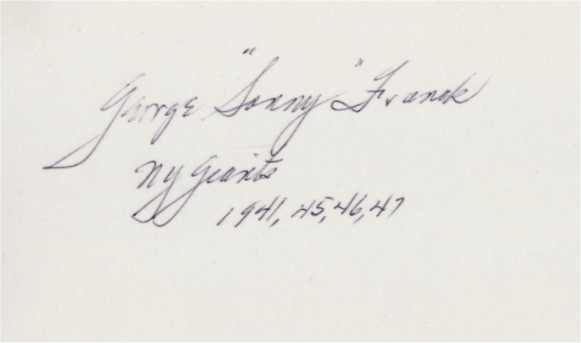 George "Sonny" Franck
NY Giants
1941, 45, 46, 47